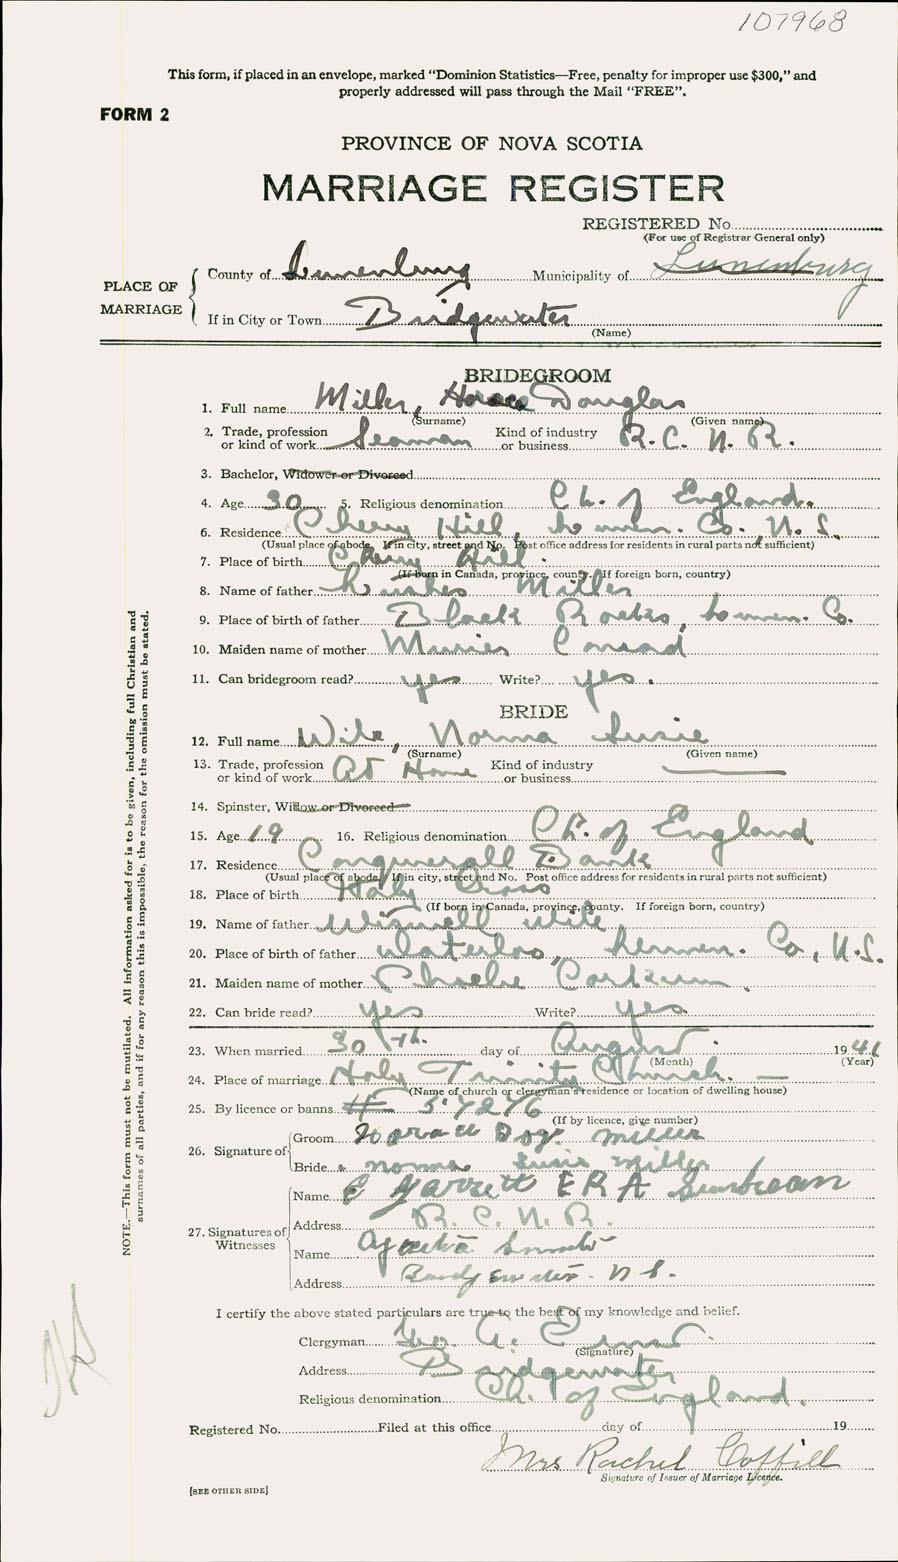 107968
This form, if placed in an envelope, marked “Dominion Statistics—Free, penalty for improper use $300,” and
properly addressed will pass through the Mail “FREE”.
FORM 2
PROVINCE OF NOVA SCOTIA
MARRIAGE REGISTER
REGISTERED No
(For use of Registrar General only)
PLACE OF MARRIAGE
County of Lunenburg Municipality of Lunenburg
If in City or Town Bridgewater
(Name)
BRIDEGROOM
1. Full name Miller, Horace Douglas
(Surname) (Given name)
2. Trade, profession or kind of work Seaman Kind of industry or business R.C.N.R.
3. Bachelor, Widower or Divorced
4. Age 30 5. Religious denomination Ch. of England.
6. Residence Cherry Hill, Lunen. Co., N.S.
(Usual place of abode. If in city, street and No. Post office address for residents in rural parts not sufficient)
7. Place of birth Cherry Hill.
(If born in Canada, province, county. If foreign born, country)
8. Name of father Miller
9. Place of birth of father Black Rocks, Lunen. Co.
10. Maiden name of mother Conrad
11. Can bridegroom read? yes Write? yes.
BRIDE
12. Full name Wile, Norma Susie
(Surname) (Given name)
13. Trade, profession or kind of work At Home Kind of industry or business
14. Spinster, Widow or Divorced
15. Age 19 16. Religious denomination Ch. of England
17. Residence Conquerall Bank
(Usual place of abode. If in city, street and No. Post office address for residents in rural parts not sufficient)
18. Place of birth
(If born in Canada, province, county. If foreign born, country)
19. Name of father Wile
20. Place of birth of father Waterloo, Lunen. Co, N.S.
21. Maiden name of mother Phoebe Corkum
22. Can bride read? yes Write? yes
23. When married 30th. day of August 1941
(Month) (Year)
24. Place of marriage Holy Trinity Church. —
(Name of church or clergyman's residence or location of dwelling house)
25. By licence or banns # 57276
(If by licence, give number)
26. Signature of
Groom Horace Doug. Miller
Bride Norma Susie Miller
27. Signatures of Witnesses
Name E Garrett ERA
Address R.C.N.R.
Name
Address Bridgewater. N S.
I certify the above stated particulars are true to the best of my knowledge and belief.
Clergyman Geo. A. Ernst
(Signature)
Address Bridgewater
Religious denomination Ch. of England.
Registered No. Filed at this office day of 19
Mrs Rachel Coffill
Signature of Issuer of Marriage Licence.
[SEE OTHER SIDE]
NOTE.—This form must not be mutilated. All information asked for is to be given, including full Christian and
surnames of all parties, and if for any reason this is impossible, the reason for the omission must be stated.